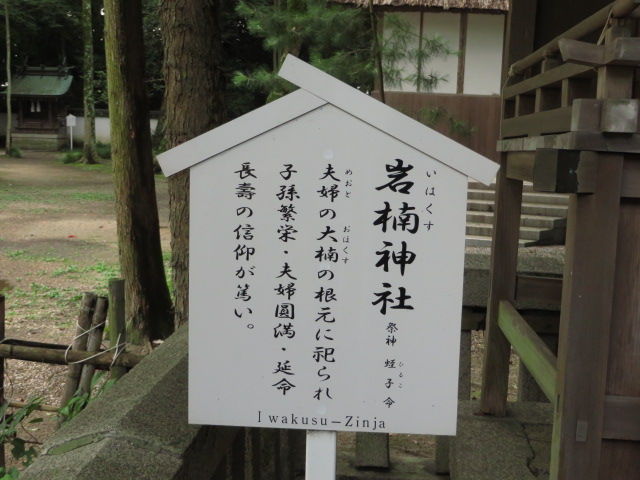 いはくす
岩楠神社
祭神 蛭子命
ひるこ
めおと おほくす
夫婦の大楠の根元に祀られ
子孫繁栄・夫婦圓満・延命
長壽の信仰が篤い。
Iwakusu－Zinja